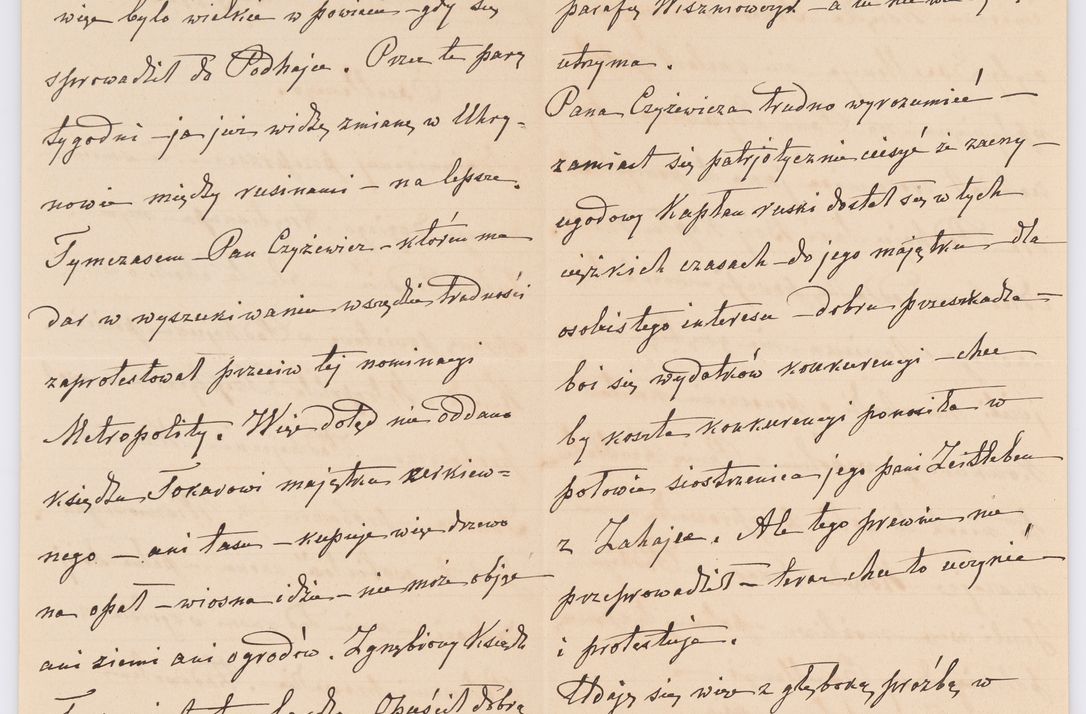 więc było wielkie w powiecie – gdy się
sprowadził do Podhajec. Przez te parę
tygodni – ja już widzę zmianę w Uhry-
nowie między rusinami – na lepsze.
Tymczasem – Pan Czyżewicz – któren ma
dar w wyszukiwaniu wszędzie trudności
zaprotestował przeciw tej nominacyi
Metropolity. Więc dotąd nie oddano
księdzu Tokarowi majątku cerkiew=
nego – ani lasu – kupuje więc drzewo
na opał – wiosna idzie – nie może objąć
ani ziemi ani ogrodów. Zgnębiony Ksiądz
Opuścił dobrą
parafię Wiszniowczyk – a tu nie
utrzyma.
Pana Czyżewicza trudno wyrozumieć –
zamiast się patrjotycznie cieszyć że zacny –
ugodowy Kapłan ruski dostał się w tych
ciężkich czasach – do jego majątku – dla
osobistego interesu – dobru przeszkadza –
boi się wydatków konkurencyi – chce
by koszta konkurencyi ponosiła w
połowie siostrzenica jego pani Zeitleben
z Zahajec. Ale tego prawnie nie
przeprowadził – teraz chce to uczynić
i protestuje.
Udaję się więc z głęboką prośbą w